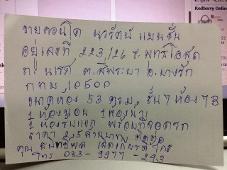 ขายคอนโด นวรัตน์ แมนชั่น
อยู่เลขที่ 223/26 ซ.พุทธโอสถ
ถ. นเรศ ต.สี่พระยา อ.บางรัก
กทม. 10500
ขนาดห้อง 53 ตรม, ชั้น 7 ห้อง 7B
1 ห้องนอน 1 ห้องน้ำ
1 ห้องรับแขก พร้อมที่จอดรถ
ราคา 2.5 ล้านบาท
คุณ
โทร 083-